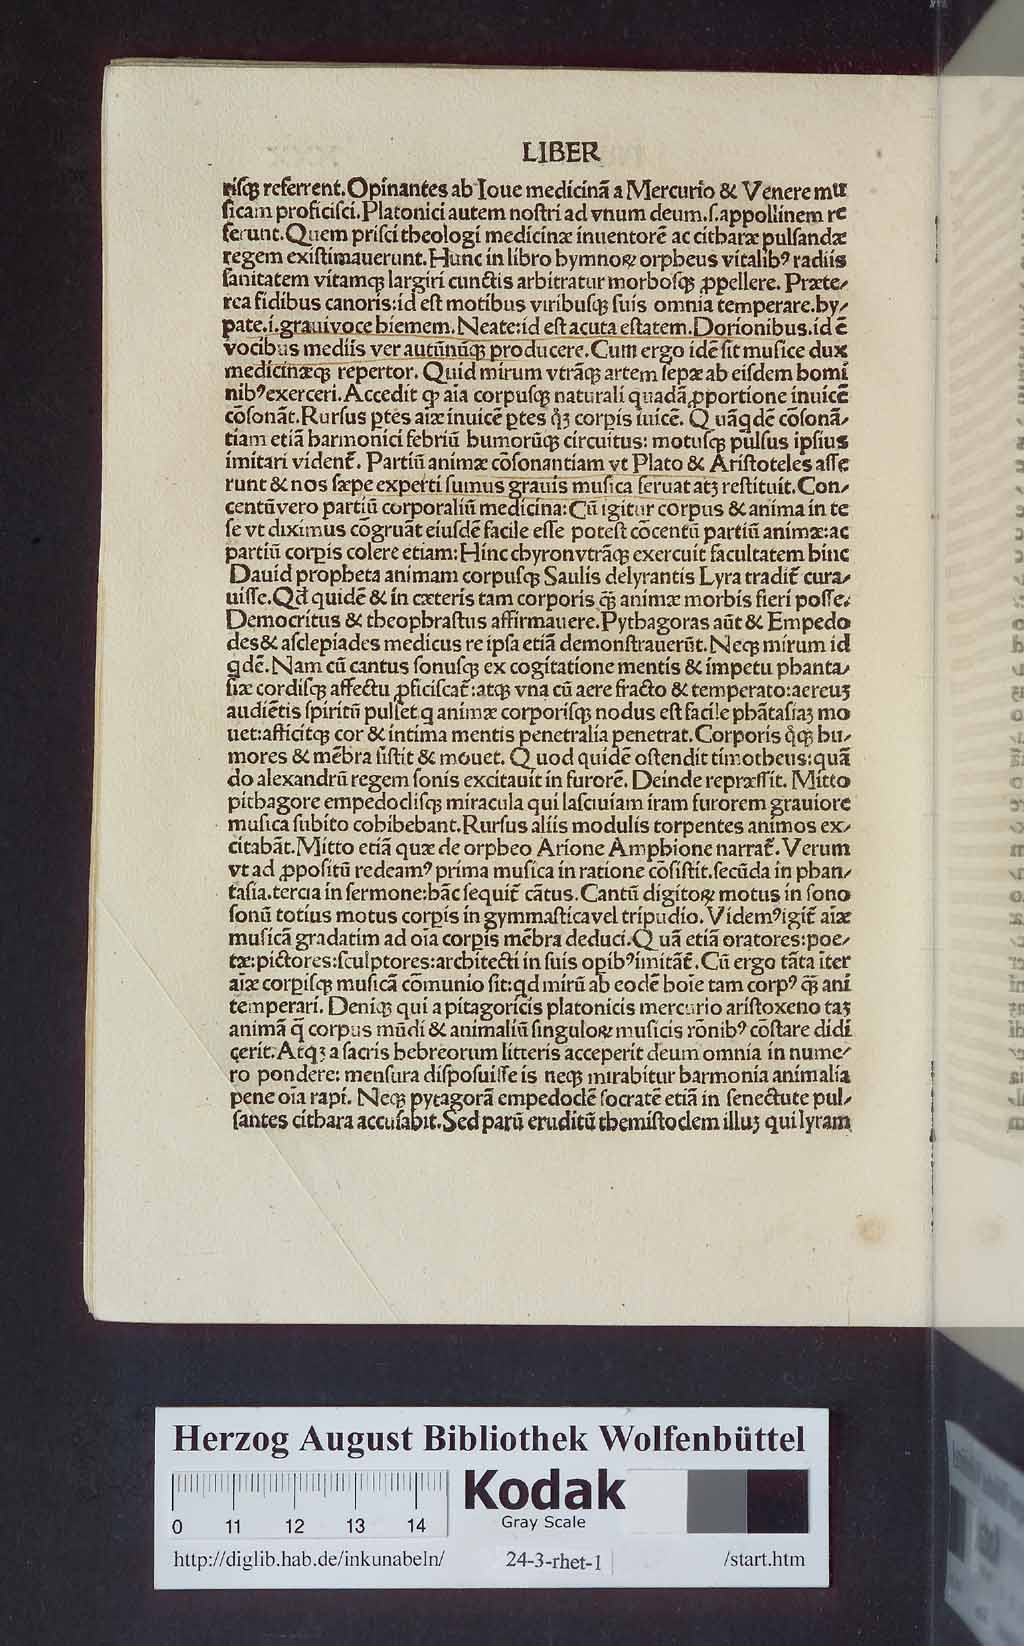 LIBER
risqꝫ referrent. Opinantes ab Ioue medicinā a Mercurio & Venere mu
sicam proficisci. Platonici autem nostri ad vnum deum .s. appollinem re
ferunt. Quem prisci theologi medicinæ inuentorē ac citharæ pulsandæ
regem existimauerunt. Hunc in libro hymnoꝝ orpheus vitalibꝰ radiis
sanitatem vitamqꝫ largiri cunctis arbitratur morbosqꝫ ꝓpellere. Præte⸗
rea fidibus canoris: id est motibus viribusqꝫ suis omnia temperare. hy⸗
pate .i. graui voce hiemem. Neate: id est acuta estatem. Dorionibus. id ē
vocibus mediis ver autūnūqꝫ producere. Cum ergo idē sit musice dux
medicinæqꝫ repertor. Quid mirum vtrāqꝫ artem sepæ ab eisdem homi
nibꝰ exerceri. Accedit ꝙ aīa corpusqꝫ naturali quadā ꝓportione inuicē
cōsonāt. Rursus ꝑtes aīæ inuicē ꝑtes qꝫ corꝑis īuicē. Quāqdē cōsonā⸗
tiam etiā harmonici febriū humorūqꝫ circuitus: motusqꝫ pulsus ipsius
imitari vident̄. Partiū animæ cōsonantiam vt Plato & Aristoteles asse
runt & nos sæpe experti sumus grauis musica seruat atꝫ restituit. Con⸗
centū vero partiū corporaliū medicina: Cū igitur corpus & anima in te
se vt diximus cōgruāt eiusdē facile esse potest cōcentū partiū animæ: ac
partiū corꝑis colere etiam: Hinc chyron vtrāqꝫ exercuit facultatem hinc
Dauid propheta animam corpusqꝫ Saulis delyrantis Lyra tradit̄ cura⸗
uisse. Qd̄ quidē & in cæteris tam corporis q̄ꝫ animæ morbis fieri posse.
Democritus & theophrastus affirmauere. Pythagoras aūt & Empedo
des & asclepiades medicus re ipsa etiā demonstrauerūt. Neqꝫ mirum id
qdē. Nam cū cantus sonusqꝫ ex cogitatione mentis & impetu phanta⸗
siæ cordisqꝫ affectu ꝓficiscat̄: atqꝫ vna cū aere fracto & temperato: aereuꝫ
audiētis spiritū pulset q animæ corporisqꝫ nodus est facile phātasiaꝫ mo
uet: afficitqꝫ cor & intima mentis penetralia penetrat. Corporis qͦqꝫ hu⸗
mores & mēbra sistit & mouet. Quod quidē ostendit timotheus: quā
do alexandrū regem sonis excitauit in furorē. Deinde repræssit. Mitto
pithagore empedoclisqꝫ miracula qui lasciuiam iram furorem grauiore
musica subito cohibebant. Rursus aliis modulis torpentes animos ex⸗
citabāt. Mitto etiā quæ de orpheo Arione Amphione narrat̄. Verum
vt ad ꝓpositū redeamꝰ prima musica in ratione cōsistit. secūda in phan⸗
tasia. tercia in sermone: hāc sequit̄ cātus. Cantū digitoꝝ motus in sono
sonū totius motus corꝑis in gymmastica vel tripudio. Videmꝰ igit̄ aīæ
musicā gradatim ad oīa corꝑis mēbra deduci. Quā etiā oratores: poe⸗
tæ: pictores: sculptores: architecti in suis opibꝰ imitāt̄. Cū ergo tāta īter
aīæ corꝑisqꝫ musicā cōmunio sit: qd mirū ab eodē hoīe tam corpꝰ q̄ꝫ ani
temperari. Deniqꝫ qui a pitagoricis platonicis mercurio aristoxeno taꝫ
animā q̄ corpus mūdi & animaliū singuloꝝ musicis rōnibꝰ cōstare didi
cerit. Atqꝫ a sacris hebreorum litteris acceperit deum omnia in nume⸗
ro pondere: mensura disposuisse is neqꝫ mirabitur harmonia animalia
pene oīa rapī. Neqꝫ pytagorā empedoclē socratē etiā in senectute pul⸗
santes cithara accusabit. Sed parū eruditū themistoclem illuꝫ qui lyram
Herzog August Bibliothek Wolfenbüttel
0 11 12 13 14
Kodak
Gray Scale
http://diglib.hab.de/inkunabeln/ 24-3-rhet-1 /start.htm